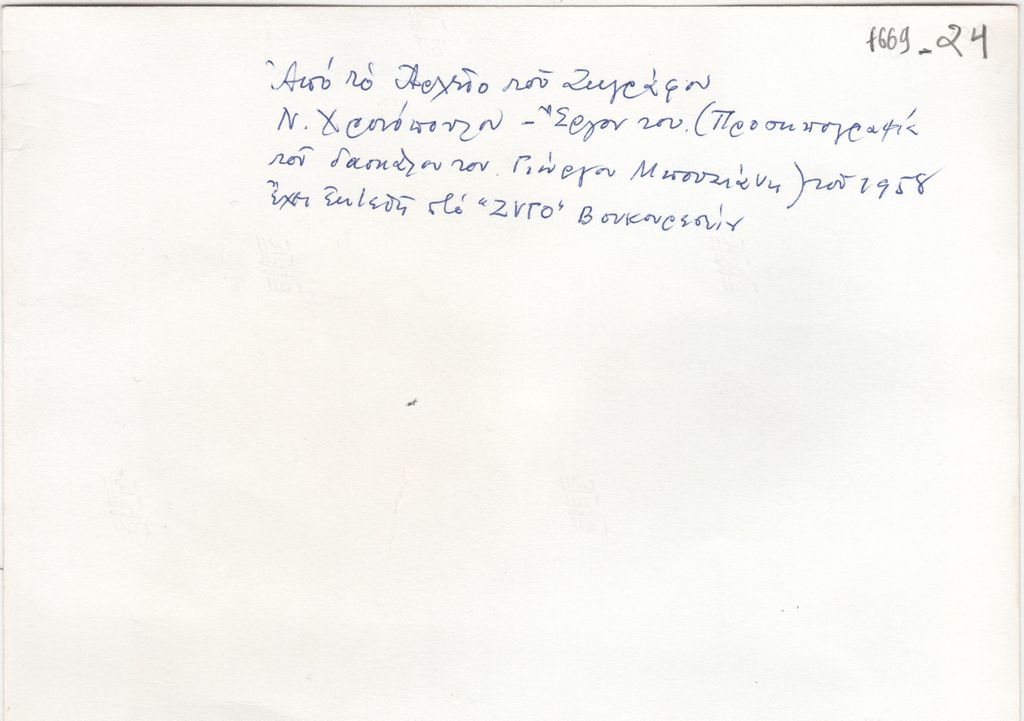 1669-24
Ἀπό τό Ἀρχεῖο τοῦ Ζωγράφου
Ν. Χριστόπουλου - Ἔργον του. (Προσωπογραφία
τοῦ δασκάλου του. Γιώργου Μπουζιάνη) τοῦ 1958
Ἔχει ἐκτεθῆ στό "ΖΥΓΟ" Βουκουρεστίν